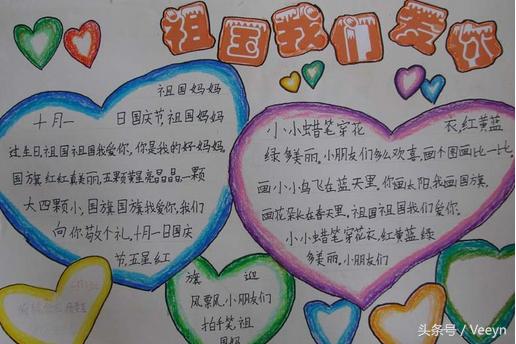 祖国我们爱你
祖国妈妈
十月一日国庆节,祖国妈妈
过生日,祖国祖国我爱你,你是我的好妈妈。
国旗红红真美丽,五颗星星亮晶晶,一颗
大四颗小,国旗国旗我爱你,我们
向你敬个礼,十月一日国庆
节,五星红
旗迎
风飘飘,小朋友们
拍手笔,祖
国妈
小小蜡笔穿花衣,红黄蓝
绿多美丽,小朋友们多么欢喜,画个图画比一比,
画小小鸟飞在蓝天里,你画太阳,我画国旗,
画花朵长在春天里,祖国祖国我们爱你。
小小蜡笔穿花衣,红黄蓝绿
多美丽,小朋友们
头条号 / Veeyn